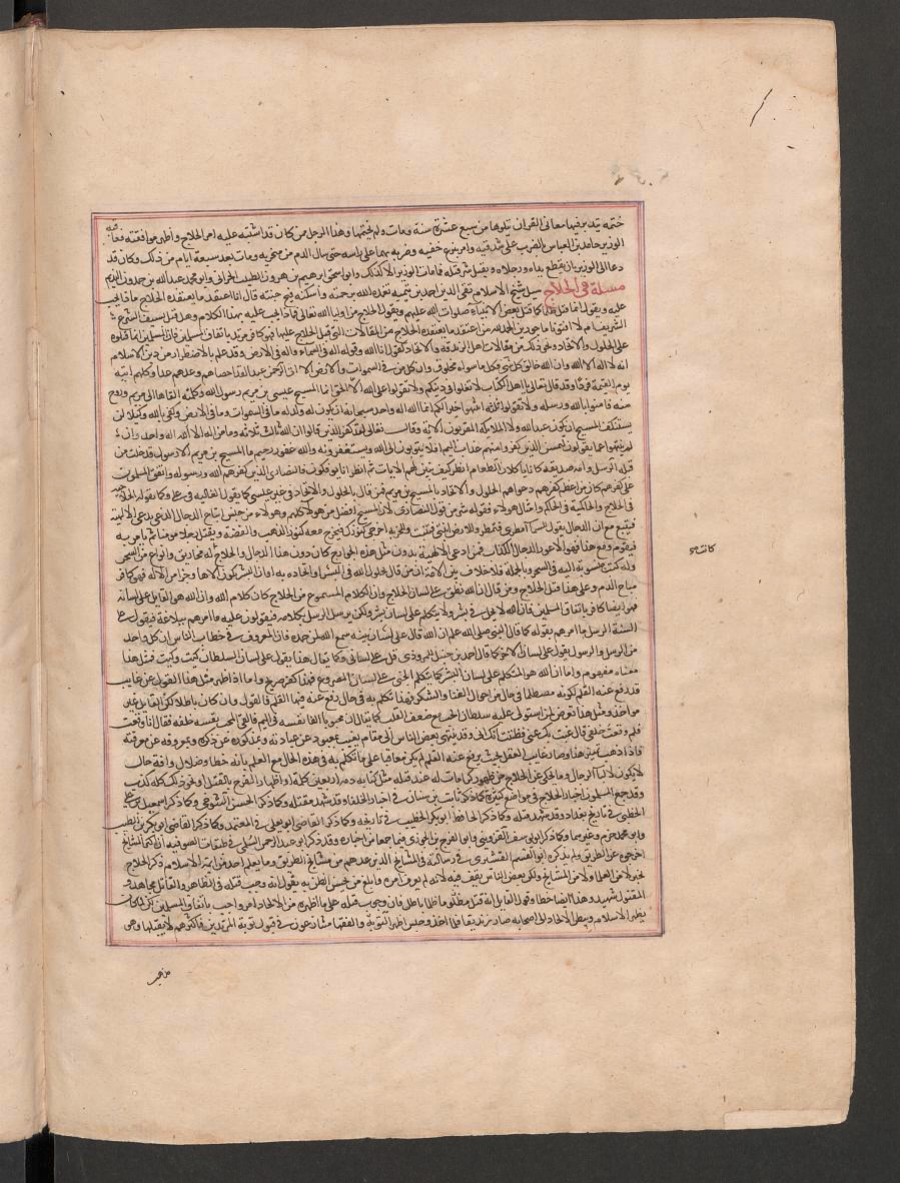 ختمة يتدبر فيها معاني القران يتلوها من سبع عشرة سنة ومات ولم يختمها وهذا الرجل ممن كان قد اشتبه عليه امر الحلاج واظهر موافقته فعاقبه
الوزير حامد بن العباس بالضرب على شدقيه وامر بنزع خفيه وضربه بهما على راسه حتى سال الدم من منخريه ومات بعد سبعة ايام من ذلك وكان قد
دعا على الوزير بان تقطع يداه ورجلاه ويقتل شر قتلة فمات الوزير الا كذلك وابو اسحق ابرهيم بن هرون الطبيب الحراني وابو محمد عبد الله بن حمدون النديم
مسئلة في الحلاج سئل شيخ الاسلام تقي الدين احمد بن تيمية تغمده الله برحمته واسكنه فسيح جنته قال انا اعتقد ما يعتقده الحلاج ماذا يجب
عليه ويقول انما قتل ظلما كما قتل بعض الانبياء صلوات الله عليهم ويقول الحلاج من اوليا الله تعالى فماذا يجب عليه بهذا الكلام وهل قتل بسيف الشرع
الشريف ام لا افتونا ماجورين الحمد لله من اعتقد ما يعتقده الحلاج من المقالات التي قتل الحلاج عليها فهو كافر مرتد باتفاق المسلمين فان المسلمين انما قتلوه
على الحلول والاتحاد ونحو ذلك من مقالات اهل الزندقة والالحاد كقوله انا الله وقوله اله في السماء واله في الارض وقد علم بالاضطرار من دين الاسلام
انه لا اله الا الله وان الله خالق كل شي وكل ما سواه مخلوق وان كل من في السموات والارض الا اتي الرحمن عبدا لقد احصاهم وعدهم عدا وكلهم اتيه
يوم القيمة فردا وقد قال تعالى يا اهل الكتاب لا تغلوا في دينكم ولا تقولوا على الله الا الحق انما المسيح عيسى بن مريم رسول الله وكلمته القاها الى مريم وروح
منه فامنوا بالله ورسله ولا تقولوا ثلثة انتهوا خيرا لكم انما الله اله واحد سبحانه ان يكون له ولد له ما في السموات وما في الارض وكفى بالله وكيلا لن
يستنكف المسيح ان يكون عبدا لله ولا الملايكة المقربون الاية وقالت تعالى لقد كفر الذين قالوا ان الله ثالث ثلاثة وما من اله الا اله واحد وان
لم ينتهوا عما يقولون ليمسن الذين كفروا منهم عذاب اليم افلا يتوبون الى الله ويستغفرونه والله غفور رحيم ما المسيح بن مريم الا رسول قد خلت من
قبله الرسل وامه صديقة كانا ياكلان الطعام انظر كيف نبين لهم الايات ثم انظر انى يوفكون فالنصارى الذين كفرهم الله ورسوله واتفق المسلمون
على كفرهم كان من اعظم كفرهم دعواهم الحلول والاتحاد بالمسيح بن مريم فمن قال بالحلول والاتحاد في غير عيسى كما يقول الغالية في علي وكما يقوله الحلاجية
في الحلاج والحاكمية في الحاكم وامثال هولاء فقوله شر من قول النصارى لان المسيح افضل من هولاء كلهم وهولاء من جنس اتباع الدجال الذي يدعي الالهية
فيتبع مع ان الدجال يقول للسما امطري فتمطر وللارض انبتي فتنبت وللخربة اخرجي كنوزك فتخرج معه كنوز الذهب والفضة ويقتل رجلا مومنا ثم يامر به
فيقوم ومع هذا فهو الاعور الدجال الكذاب فمن ادعى الالهية بدون مثل هذه الخوارق كان دون هذا الدجال والحلاج له مخاريق وانواع من السحر
وله كتب منسوبة اليه في السحر وبالجملة فلا خلاف بين الامة ان من قال بحلول الله في البشر واتحاده به او ان البشر يكون الاها وهذا من الالهة فهو كافر
مباح الدم وعلى هذا قتل الحلاج ومن قال ان الله نطق على لسان الحلاج وان الكلام المسموع من الحلاج كان كلام الله وان الله هو القايل على لسانه
فهو ايضا كافر باتفاق المسلمين فان الله لا يحل في بشر ولا يتكلم على لسان بشر ولكن يرسل الرسل بكلامه فيقولون عليه ما امرهم ببلاغه فيقول على
السنة الرسل ما امرهم بقوله كما قال النبي صلى الله عليه ان الله قال على لسان نبيه سمع الله لمن حمده فان المعروف في خطاب الناس ان كل واحد
من المرسل والرسول يقول على لسان الاخر كما قال احمد بن حنبل للمروذي قل على لساني وكما يقال هذا يقول على لسان السلطان كيت وكيت فمثل هذا
معناه مفهوم واما ان الله هو المتكلم على لسان البشر كما تتكلم الجني على لسان المصروع فهذا كفر صريح واما اذا ظهر مثل هذا القول عن غايب
قد رفع عنه القلم لكونه مصطلما في حال من احوال الفنا والسكر فهذا تكلم به في حال رفع عنه فيها القلم فالقول وان كان باطلا لكن القايل غير
مواخذ ومثل هذا يعرض لمن استولى عليه سلطان الحب مع ضعف القلب كما يقال ان محبوبا القا نفسه في اليم فالقى المحب نفسه خلفه فقال انا وقعت
فلم وقعت خلفي قال غبت بك عني فظننت انك اني وقد ينتهي بعض الناس الى مقام يغيب بمعبوده عن عبادته وبمذكوره عن ذكره وبمعروفه عن معرفته
فاذا ذهب تمييز هذا وصار غايب العقل بحيث يرفع عنه القلم لم يكن معاقبا على ما تكلم به في هذه الحال مع العلم بانه خطا وضلال وانه حال
لا يكون لاوليا الرجال وما يحكى عن الحلاج من ظهور كرامات له عند قتله مثل كتابة دمه واظهار الفرح بالقتل او نحو ذلك كله كذب
وقد جمع المسلمون اخبار الحلاج في مواضع كثيرة كما ذكر ثابت بن سنان في اخبار الخلفا وقد شهد مقتله وكما ذكر اسمعيل بن علي
الخطبي في تاريخ بغداد وقد شهد قتله وكما ذكر الحافظ ابو بكر الخطيب في تاريخه وكما ذكر القاضي ابو يعلى في المعتمد وكما ذكر القاضي ابو بكر بن الطيب
وابو محمد بن حزم وغيرهما وكما ذكر ابو يوسف القزويني وابو الفرج بن الجوزي فيما جمعا من اخباره وقد ذكر ابو عبد الرحمن السلمي في طبقات الصوفية ان اكثر المشايخ
اخرجوه عن الطريق ولم يذكره ابو القسم القشيري في رسالته في المشايخ الذين عدهم من مشايخ الطريق وما نعلم احد من ايمة الاسلام ذكر الحلاج
بخير لا من العلما ولا من المشايخ ولكن بعض الناس يقف فيه لانه لم يعرف امره وابلغ من يحسن الظن به يقول انه وجب قتله في الظاهر والقاتل مجاهد و
المقتول شهيد وهذا ايضا خطا وقول القايل انه قتل مظلوما ظلما باطل فان وجوب قتله على ما اظهره من الالحاد امر واجب باتفاق المسلمين لكن لما كان
يظهر الاسلام ويبطن الالحاد الى اصحابه صار زنديقا فلما اخذ وحبس اظهر التوبة والفقها متنازعون في قبول توبة المرتدين فاكثرهم لا يقبلها وهو